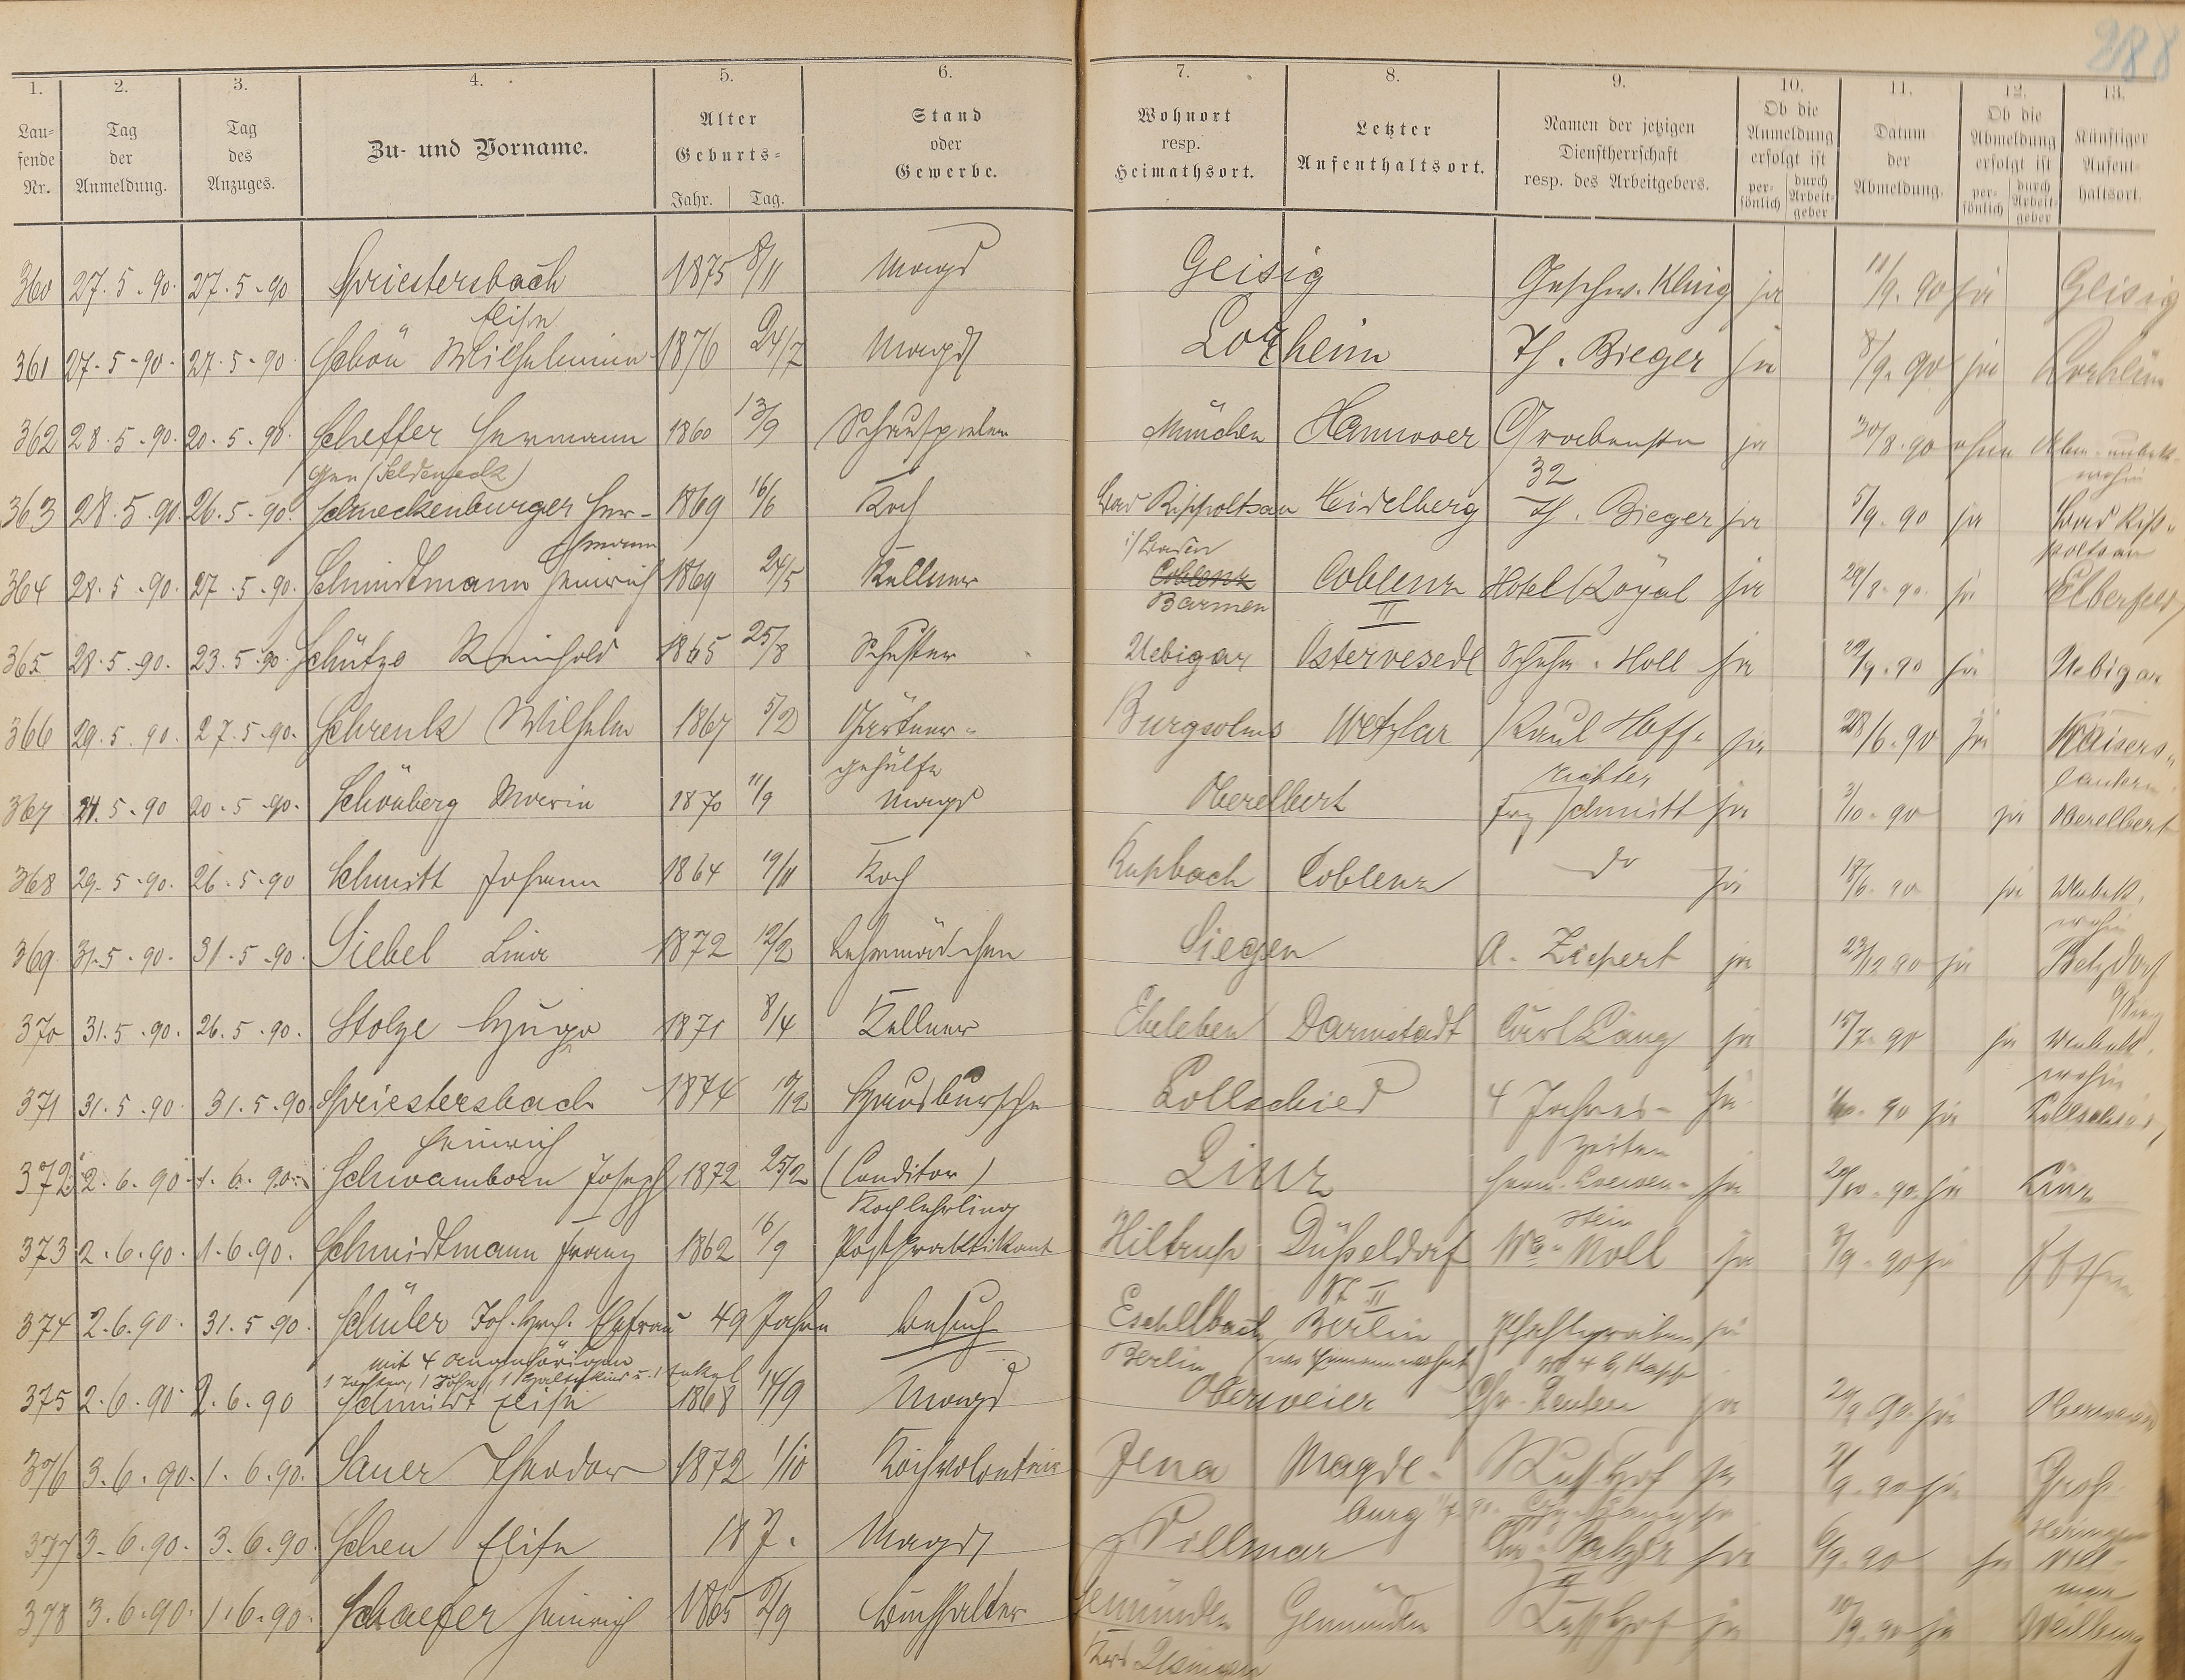 288
1. 2. 3. 4. 5. 6. 7. 8. 9. 10. 11. 12. 13.
Laufende Nr. Tag der Anmeldung. Tag des Anzuges. Zu- und Vorname. Alter Geburts- Jahr. Tag. Stand oder Gewerbe. Wohnort resp. Heimathsort. Letzter Aufenthaltsort. Namen der jetzigen Dienstherrschaft resp. des Arbeitgebers. Ob die Anmeldung erfolgt ist persönlich durch Arbeitgeber Datum der Abmeldung. Ob die Abmeldung erfolgt ist persönlich durch Arbeitgeber Künftiger Aufenthaltsort.
360 27.5.90. 27.5.90 Spriestersbach 1875 8/11 Magd Geisig Geschw. Kling ja 11/9.90 ja Geisig
Elise
361 27.5.90. 27.5.90. Schön Wilhelmine 1876 24/7 Magd Lorheim Th. Bieger ja 8/9.90 ja
362 28.5.90. 20.5.90. Scheffer Hermann 1860 13/9 Schauspieler München Hannover Grabenstr ja 30/8.90 ohne
gen (Seldeneck) 32 wohin
363 28.5.90. 26.5.90. Schneckenburger Her- 1869 16/6 Koch Bad Rippoltsau Heidelberg Th. Bieger ja 5/9.90 ja Bad Rip-
mann i/Baden poltsau
364 28.5.90. 27.5.90. Schmidtmann Heinrich 1869 24/5 Kellner Coblenz Coblenz Hotel Royal ja 29/8.90 ja Elberfeld
Barmen II
365 28.5.90. 23.5.90. Schütze Reinhold 1865 25/8 Schuster Uebigar Ostervesede Schuhm. Holl ja 29/9.90 ja Uebigar
366 29.5.90. 27.5.90. Schrenk Wilhelm 1867 5/2 Gärtner- Burgsolms Wetzlar Karl Hoff- ja 28/6.90 ja Kaisers-
gehülfe richter lautern
367 24.5.90 20.5.90. Schönberg Maria 1870 11/9 Magd Oberelbert Frz Schmitt ja 3/10.90 ja Oberelbert
368 29.5.90. 26.5.90 Schmitt Johann 1864 19/11 Koch Rupbach Coblenz do ja 18/6.90 ja Unbek.
wohin
369 31.5.90. 31.5.90. Siebel Lina 1872 12/2 Lehrmädchen Siegen A. Ziepert ja 23/12 90 ja Betzdorf
370 31.5.90. 26.5.90. Stolze Hugo 1871 8/4 Kellner Ebeleben Darmstadt Carl Lang ja 15/7.90 ja Unbek.
wohin
371 31.5.90. 31.5.90 Spriestersbach 1874 19/2 Hausbursche Lollschied 4 Jahres- ja 90 ja Lollschied
Heinrich zeiten
372 2.6.90. 1.6.90. Schwamborn Joseph 1872 25/2 (Conditor) Linz Herm. Loewen- ja 20/10.90 ja Linz
Kochlehrling stein
373 2.6.90. 1.6.90. Schmidtmann Franz 1862 16/9 Postpraktikant Hiltrup Düsseldorf Wwe Noll ja 3/9.90 ja
374 2.6.90. 31.5.90. Schüler Joh. Hch. Ehefrau 49 Jahre besuch Eschelbach Berlin ja
mit 4 Angehörigen Berlin
1 Tochter, 1 Sohn, 1 Haltekind u. 1 Enkel
375 2.6.90 2.6.90 Schmidt Elise 1868 14/9 Magd Oberweier ja 29/9.90 ja
376 3.6.90. 1.6.90. Sauer Theodor 1872 1/10 Kochvolontair Jena Magde- Russ. Hof ja 3/9.90 ja
burg
377 3.6.90. 3.6.90. Scheu Elise 187. Magd Villmar Balzer ja 6/9.90 ja Vill-
II mar
378 3.6.90. 1.6.90. Schaefer Heinrich 1865 2/9 Buchhalter Gemünden Gemünden Russ. Hof ja 10/9.90 ja Weilburg